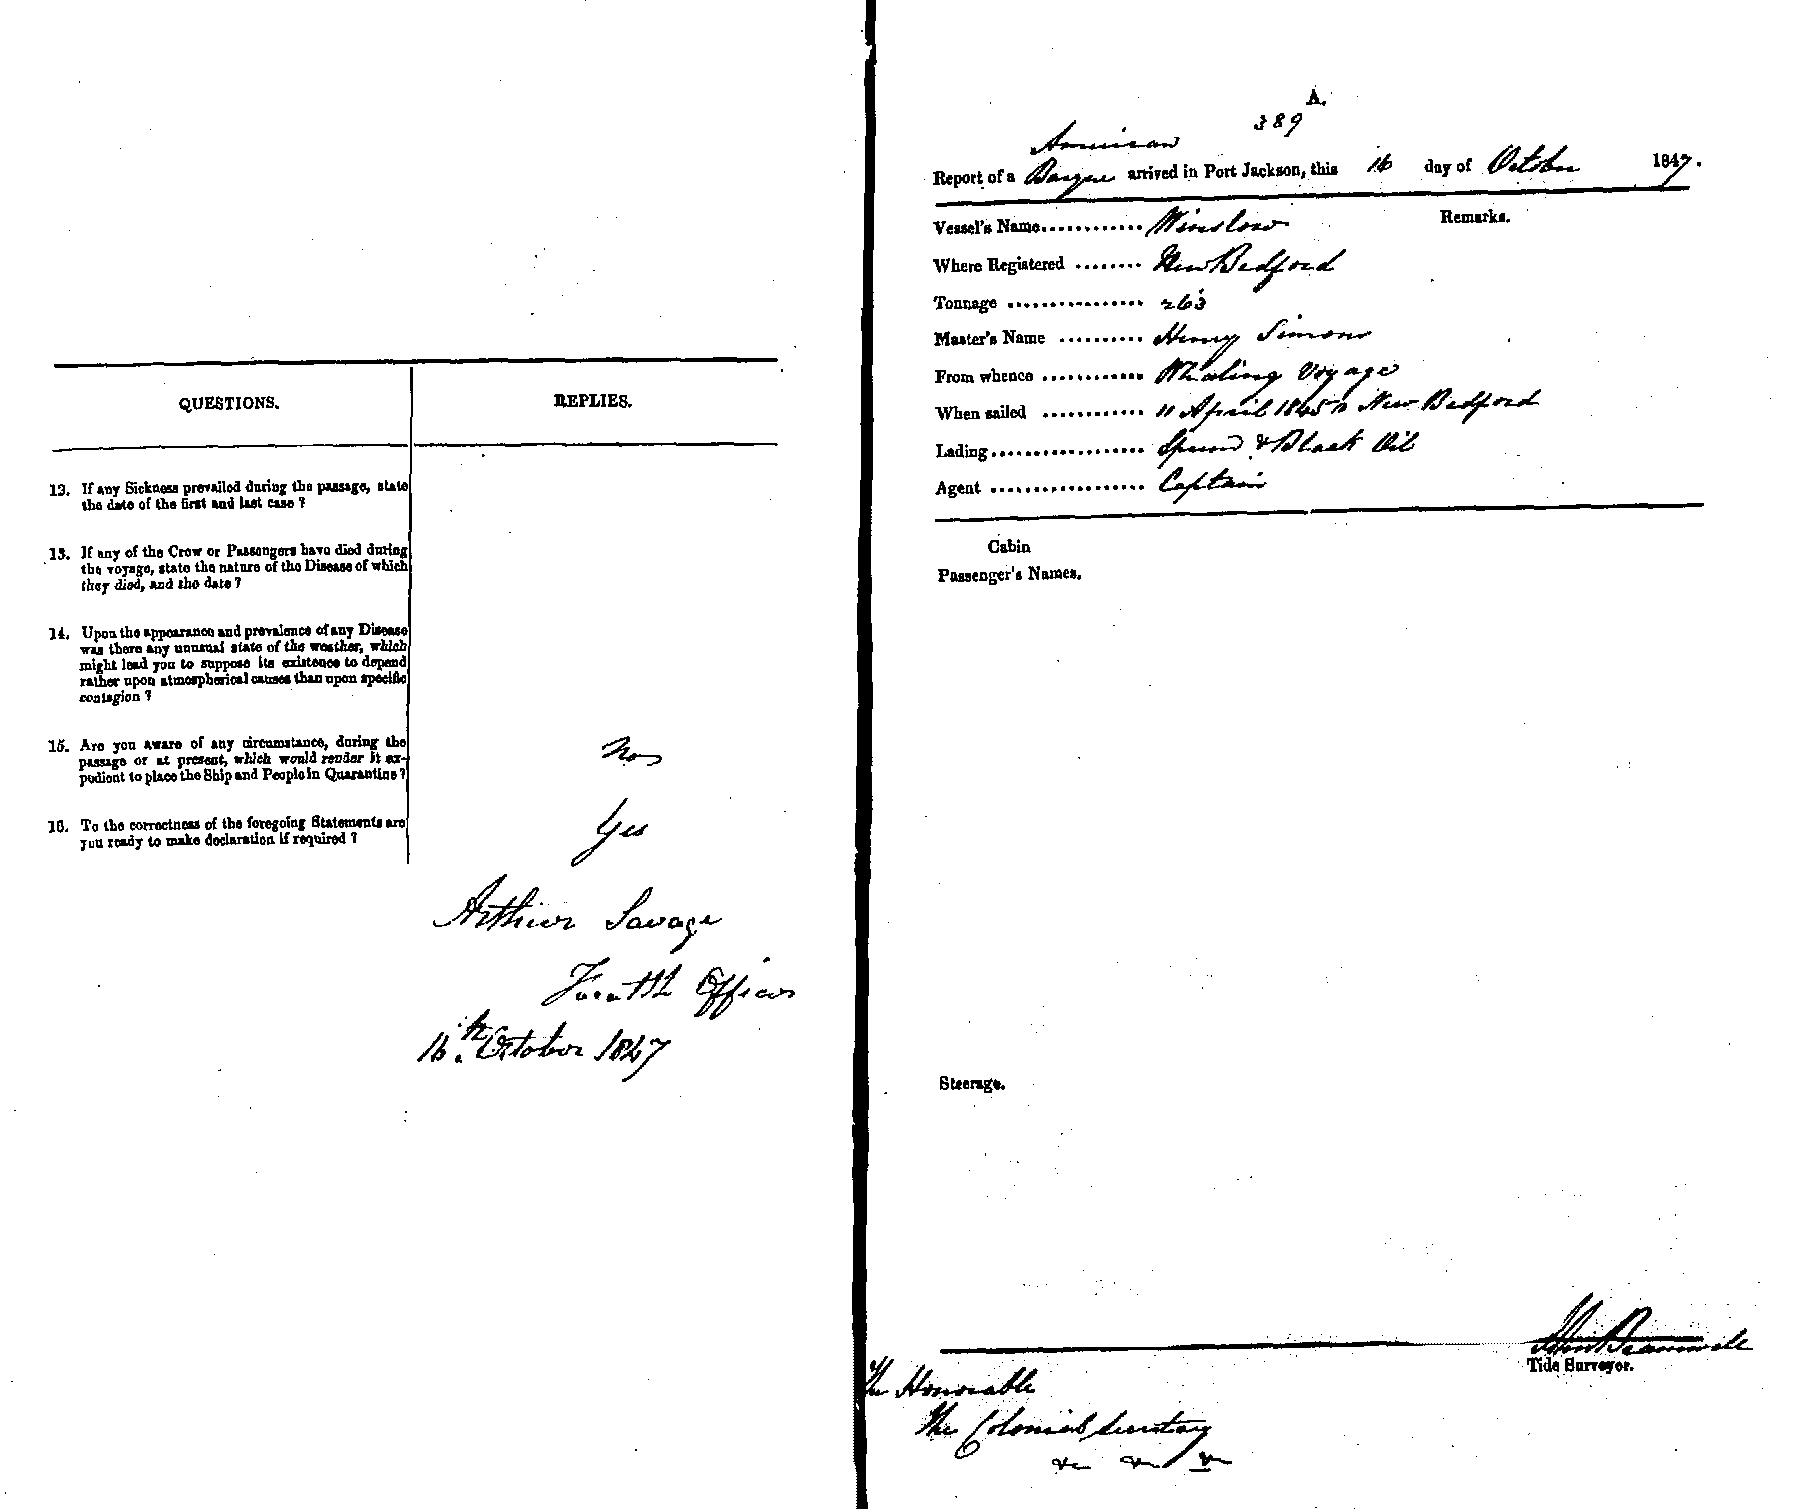 QUESTIONS.
REPLIES.
12. If any Sickness prevailed during the passage, state
the date of the first and last case ?
13. If any of the Crew or Passengers have died during
the voyage, state the nature of the Disease of which
they died, and the date ?
14. Upon the appearance and prevalence of any Disease
was there any unusual state of the weather, which
might lead you to suppose its existence to depend
rather upon atmospherical causes than upon specific
contagion ?
15. Are you aware of any circumstance, during the
passage or at present, which would render it ex-
pedient to place the Ship and People in Quarantine ?
No
16. To the correctness of the foregoing Statements are
you ready to make declaration if required ?
Yes
Arthur Savage
Fourth Officer
16th October 1847
A.
389
American
Report of a Barque arrived in Port Jackson, this 16 day of October 1847.
Remarks.
Vessel's Name............ Winslow
Where Registered ........ New Bedford
Tonnage ................ 263
Master's Name .......... Henry Simons
From whence ............ Whaling Voyage
When sailed ............ 11 April 1845 New Bedford
Lading.................. Sperm & Black Oil
Agent .................. Captain
Cabin
Passenger's Names.
Steerage.
John Bramwell
Tide Surveyor.
The Honorable
The Colonial Secretary
&c &c &c